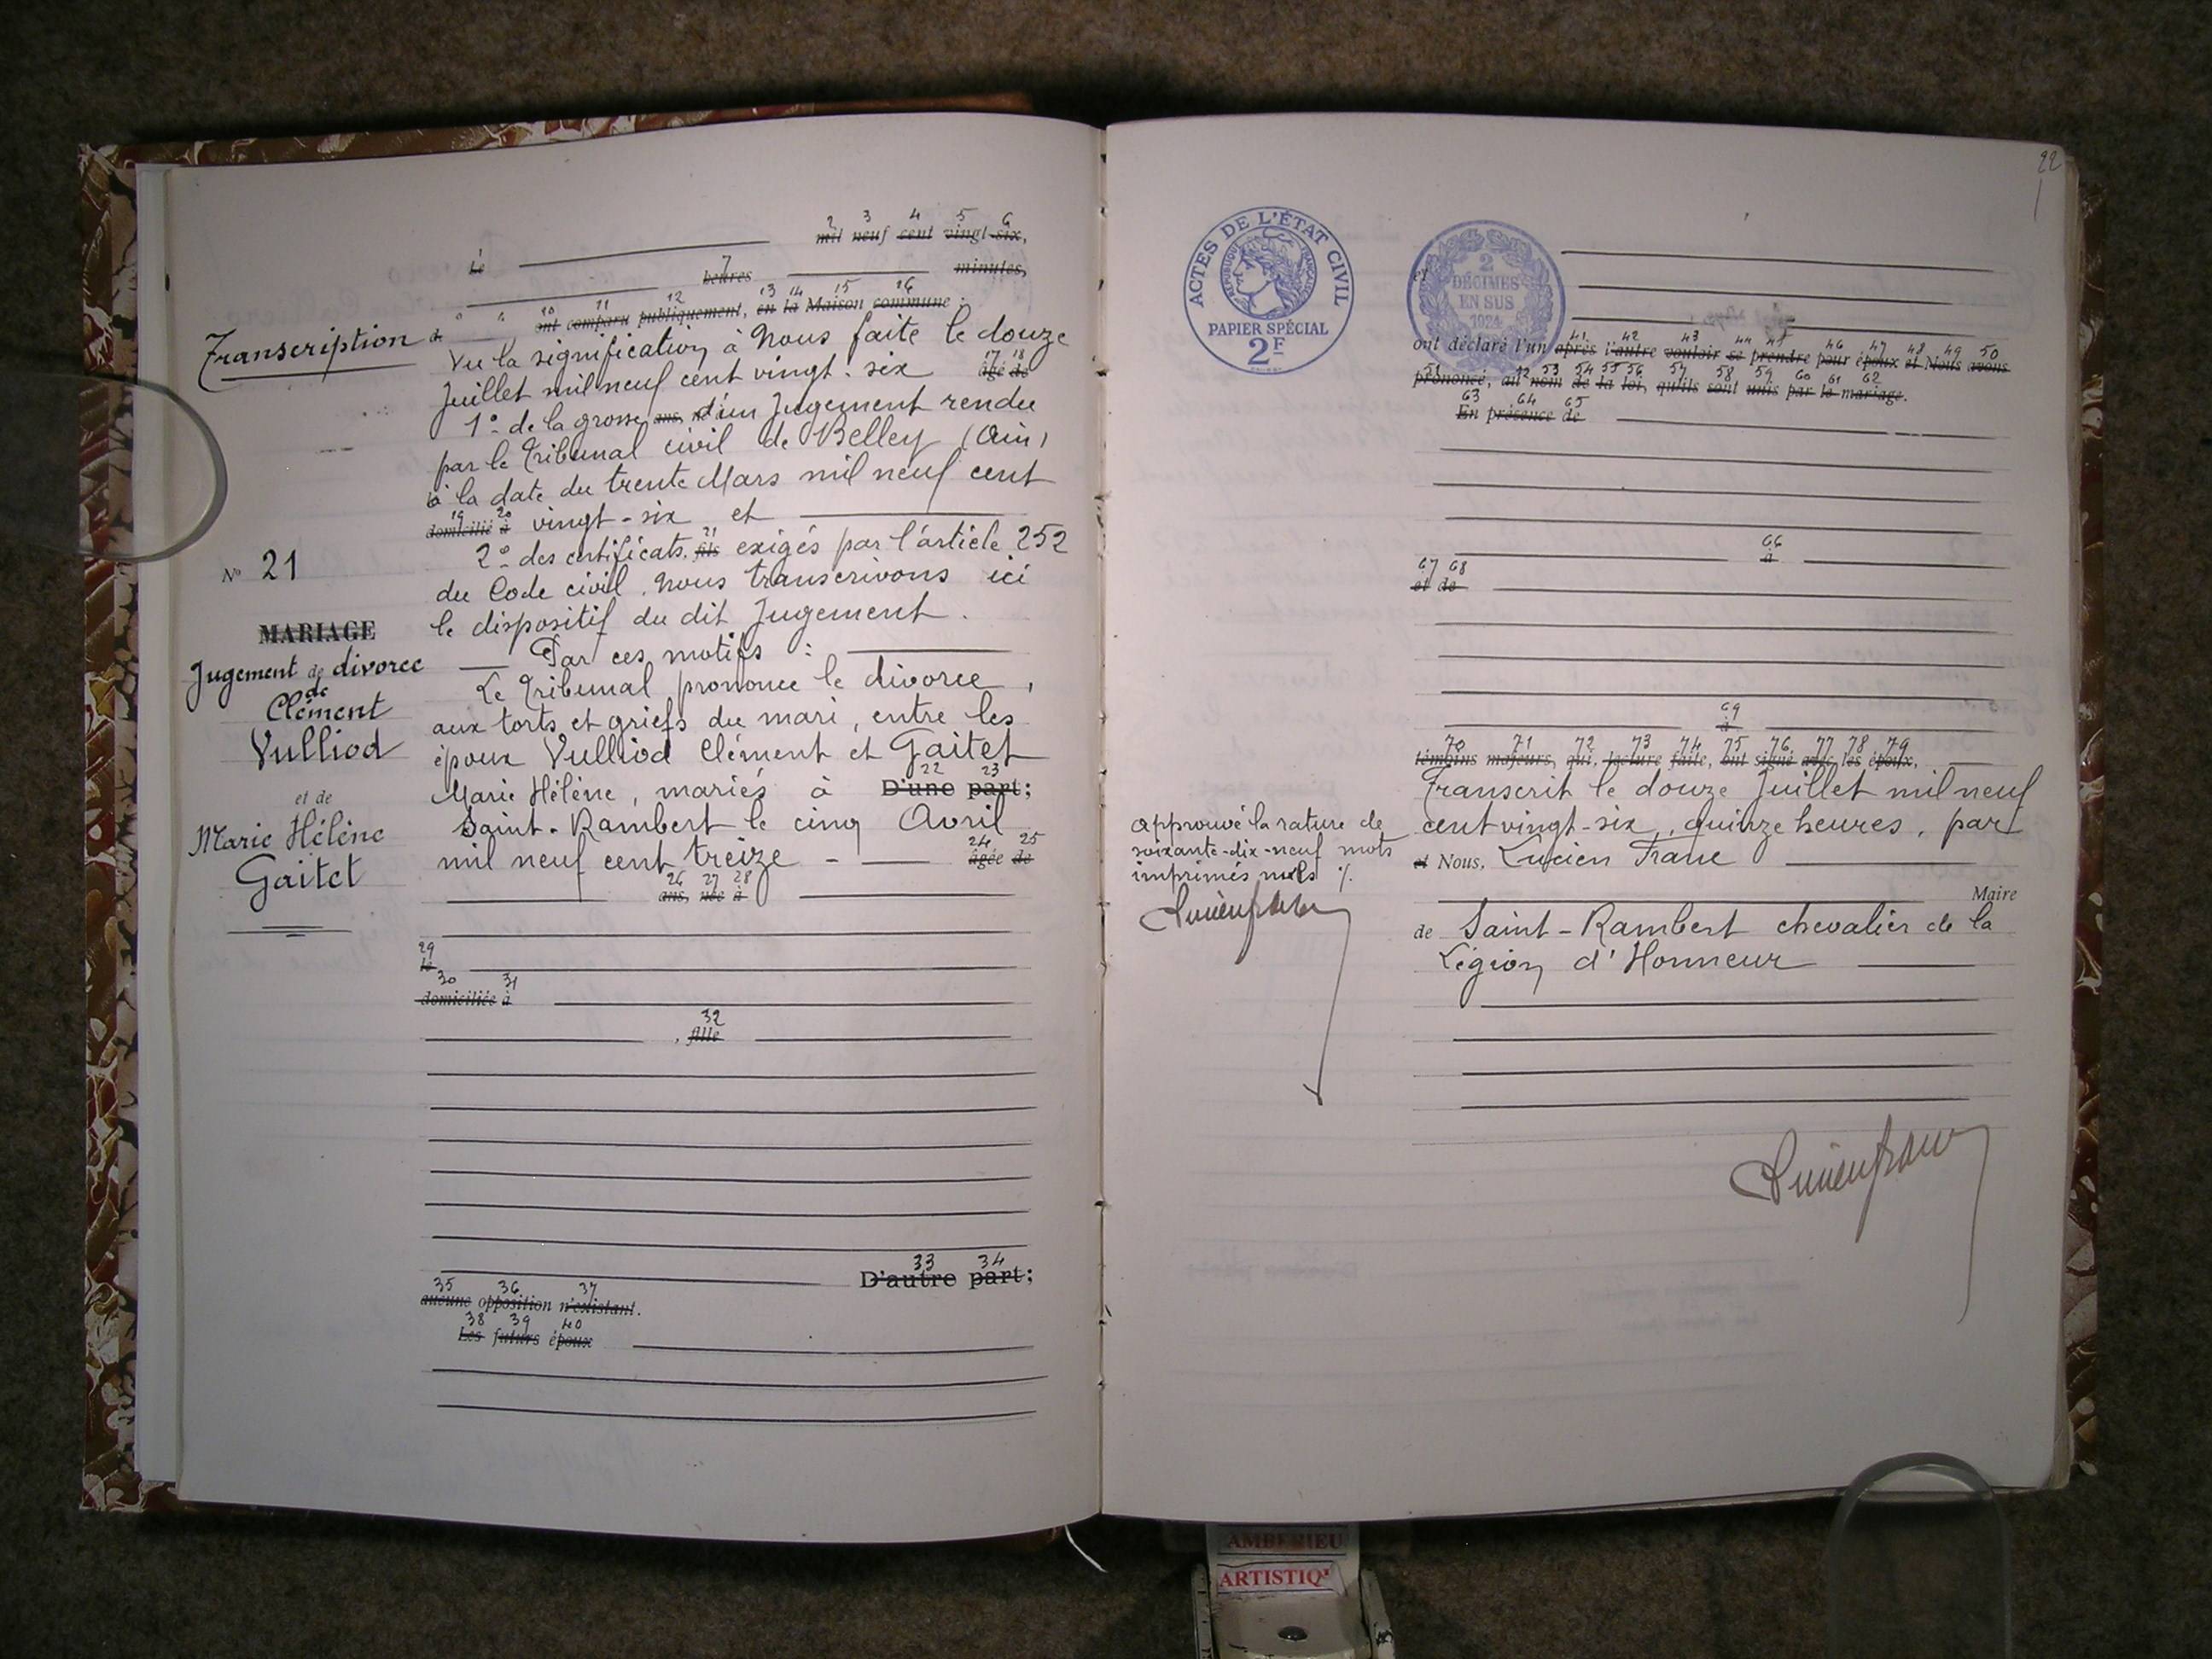 2 3 4 5 6
mil neuf cent vingt-six,
Le
7
heures minutes,
10 11 12 13 14 15 16
ont comparu publiquement, en la Maison commune :
Transcription
Vu la signification à Nous faite le douze
17 18
Juillet mil neuf cent vingt-six âgé de
1º de la grosse ans, né d'un Jugement rendu
par le Tribunal civil de Belley (Ain)
à la date du trente Mars mil neuf cent
19 20
domicilié à vingt-six et
21
2º des certificats, fils exigés par l'article 252
Nº 21
du Code civil. Nous transcrivons ici
le dispositif du dit Jugement.
MARIAGE
Jugement de divorce
de
Clément
Vulliod
et de
Marie Hélène
Gaitet
Par ces motifs :
Le Tribunal prononce le divorce,
aux torts et griefs du mari, entre les
époux Vulliod Clément et Gaitet
22 23
Marie Hélène, mariés à D'une part;
Saint-Rambert le cinq Avril
24 25
mil neuf cent treize - âgée de
26 27 28
ans, née à
29
le
30 31
domiciliée à
32
, fille
33 34
D'autre part;
35 36 37
aucune opposition n'existant.
38 39 40
Les futurs époux
22
ACTES DE L'ÉTAT CIVIL
RÉPUBLIQUE FRANÇAISE
PAPIER SPÉCIAL
2F
et
2
DÉCIMES
EN SUS
1924
41 42 43 44 45 46 47 48 49 50
ont déclaré l'un après l'autre vouloir se prendre pour époux et Nous avons
51 52 53 54 55 56 57 58 59 60 61 62
prononcé, au nom de la loi, qu'ils sont unis par le mariage.
63 64 65
En présence de
66
à
67 68
et de
69
à
70 71 72 73 74 75 76 77 78 79
témoins majeurs, qui, lecture faite, ont signé avec les époux,
Transcrit le douze Juillet mil neuf
cent vingt-six, quinze heures, par
et Nous, Lucien Franc
Maire
de Saint-Rambert chevalier de la
Légion d'Honneur
approuvé la rature de
soixante-dix-neuf mots
imprimés nuls ./.
Lucien Franc
Lucien Franc
AMBERIEU
ARTISTIQ